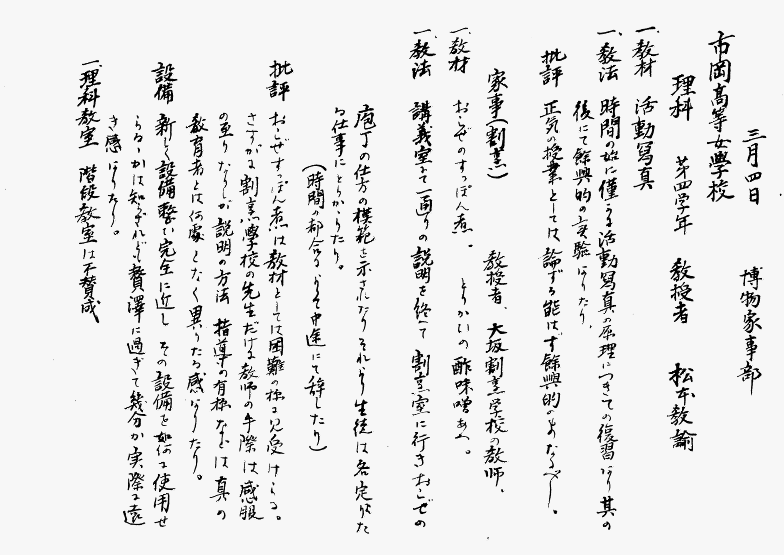 三月四日　博物家事部
市岡高等女學校
理科　第四学年　教授者　松本教諭
一、教材　活動寫真
一、教法　時間の始に僅かなる活動寫真の原理につきての復習なり其の
後にて餘興的の実驗なりたり。
批評　正気の授業としては論ずる能はず餘興的のものなるべし。
家事（割烹）　教授者、大坂割烹学校の教師、
一、教材　おこぜのすっぽん煮。　とりがいの酢味噌あへ。
一、教法　講義室にて一通りの説明を終へて割烹室に行きおこぜの
庖丁の仕方の模範を示されたりそれより生徒は各定めた
る仕事にとりかゝりたり。
（時間の都合によりて中途にて辞したり）
批評　おこぜすっぽん煮は教材としては困難の様に見受けらる。
さすがに割烹學校の先生だけ教師の手際は感服
の至りなりしが説明の方法　指導の有様などは真の
教育者とは何處となく異りたる感ありたり。
設備　新しき設備整い完全に近し　その設備を如何に使用せ
らるゝかは知らざれど贅澤に過ぎて幾分か実際に遠
き感ありたり。
一、理科教室　階段教室は不賛成